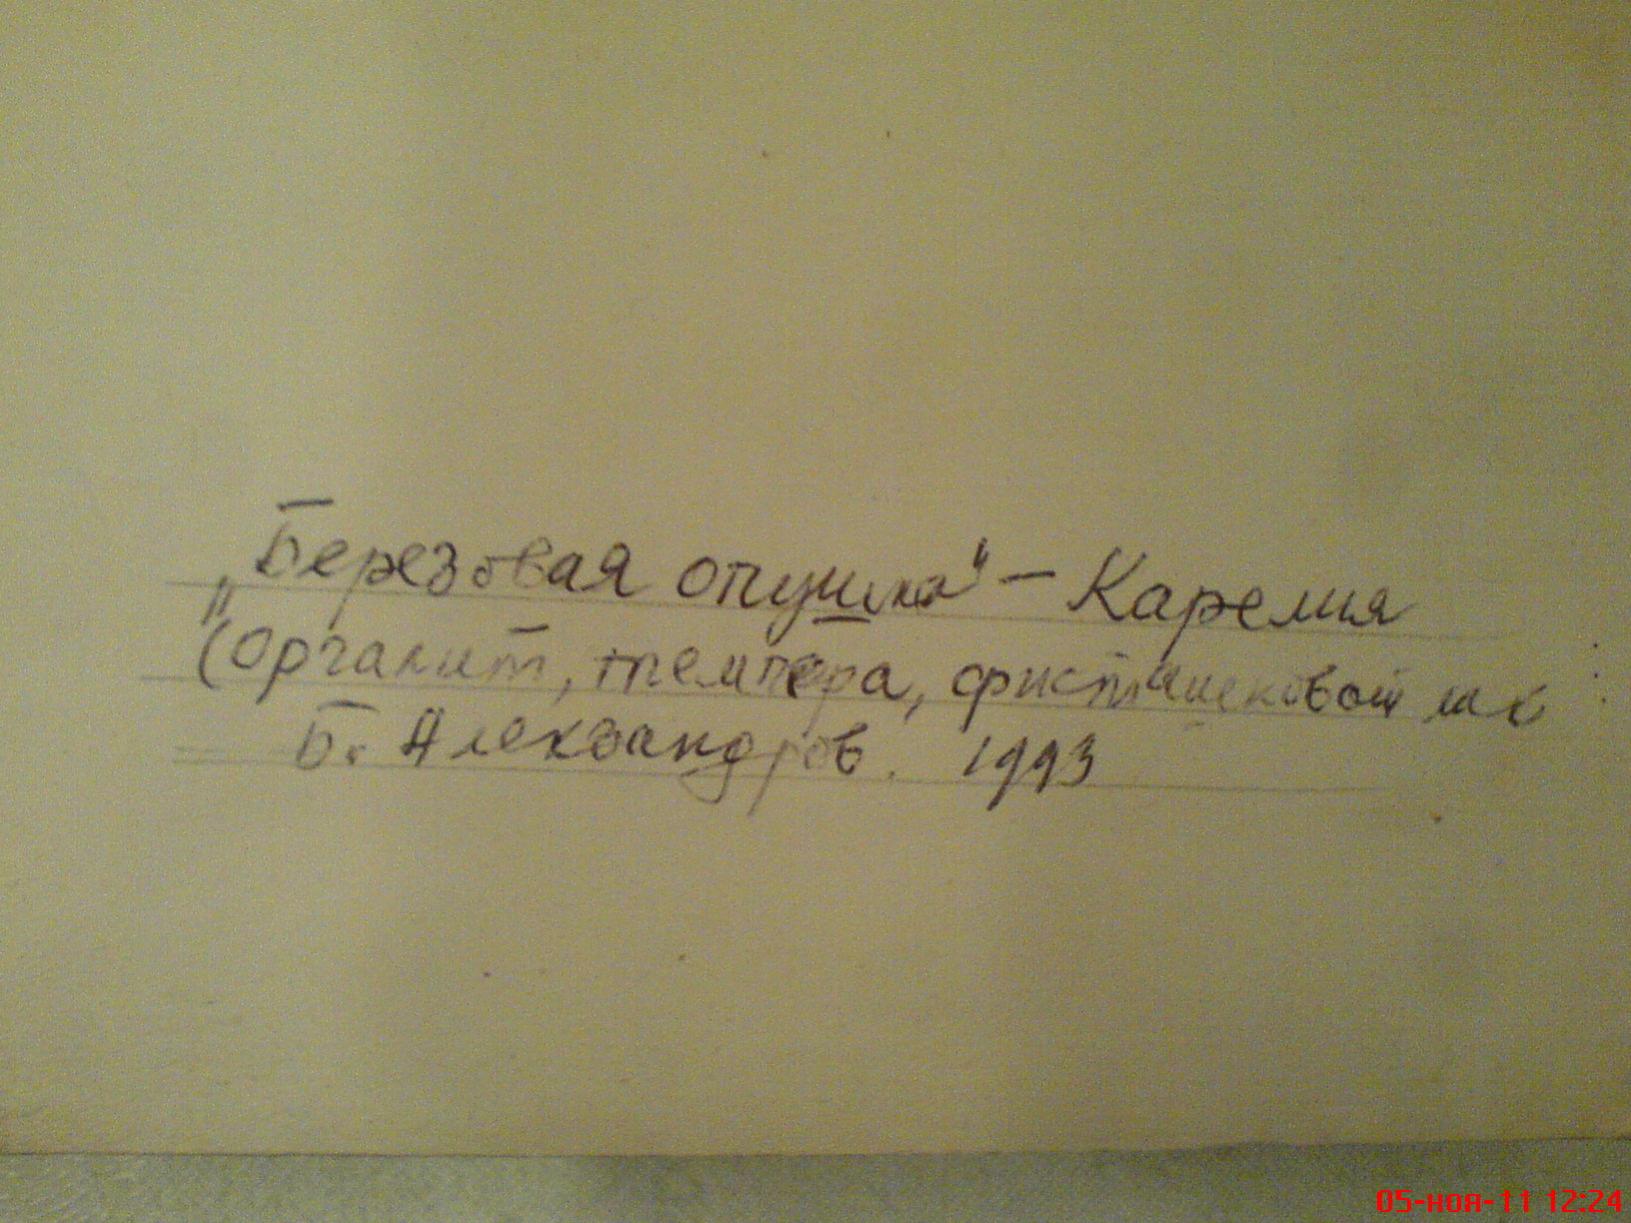 „Березовая опушка" – Карелия
(Оргалит, темпера, фисташковый лак
Б. Александров. 1993
05-ноя-11 12:24